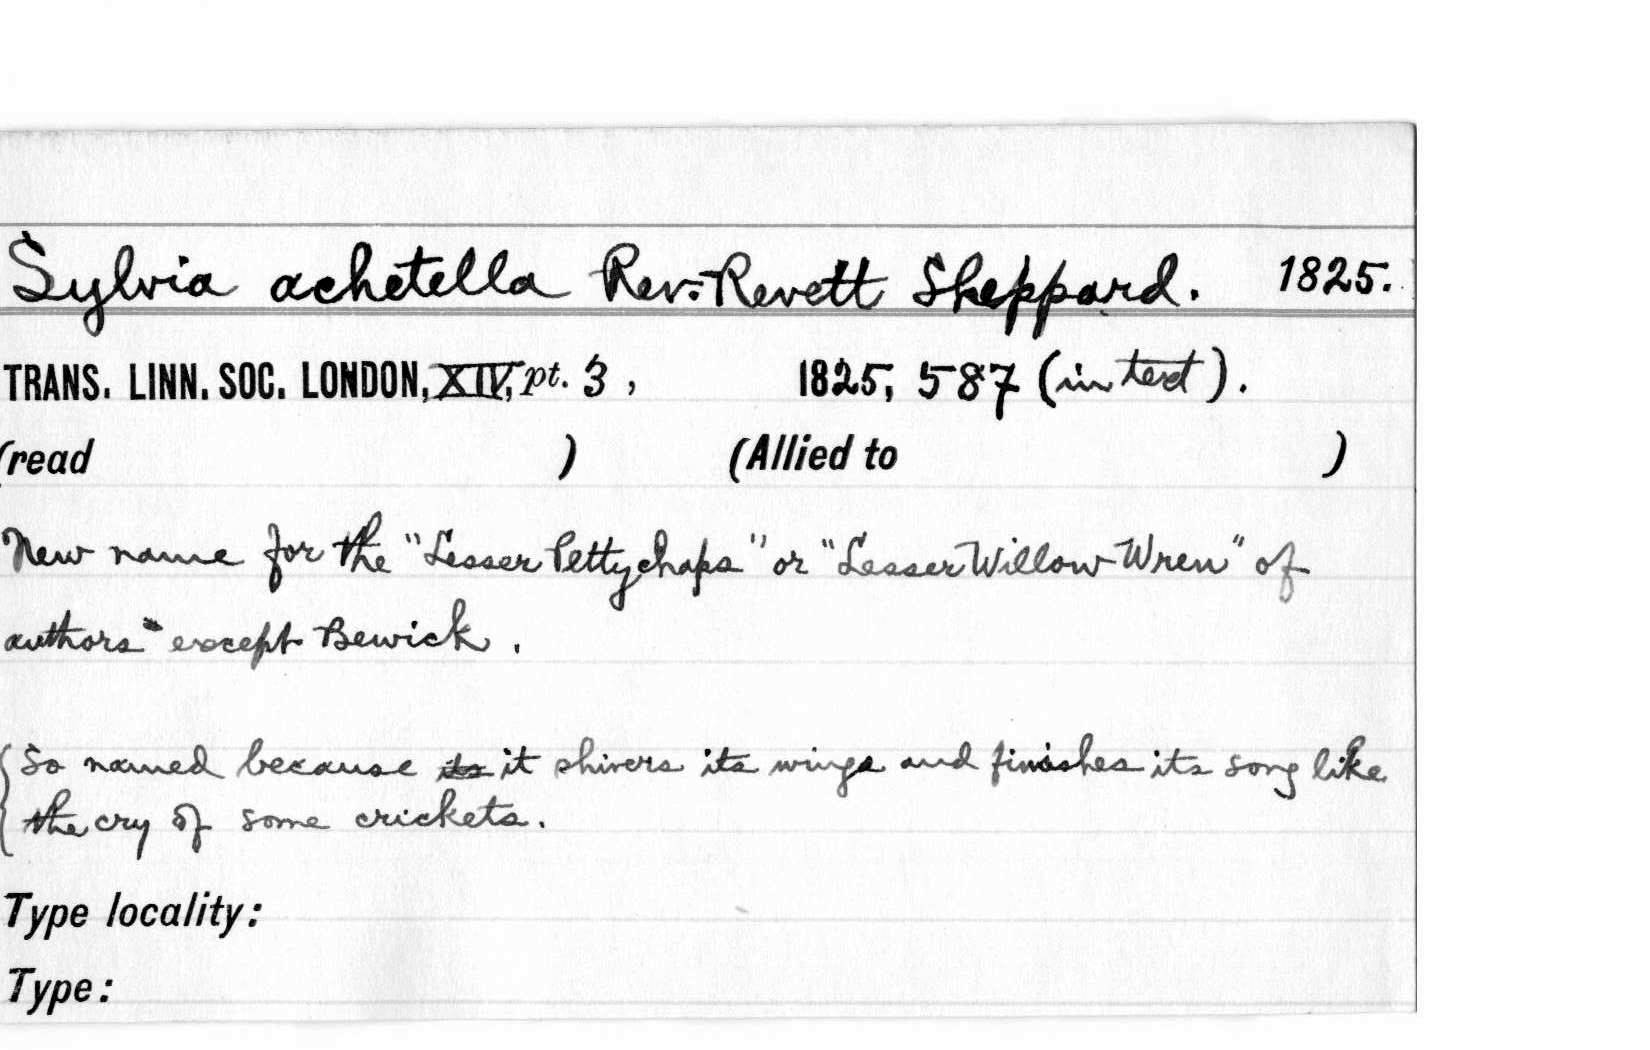 Sylvia achetella Rev. Revett Sheppard. 1825.
TRANS. LINN. SOC. LONDON, XIV, pt. 3, 1825, 587 (in text).
(read ) (Allied to )
New name for the "Lesser Pettychaps" or "Lesser Willow Wren" of
authors except Bewick.
So named because its it shivers its wings and finishes its song like
the cry of some crickets.
Type locality:
Type: